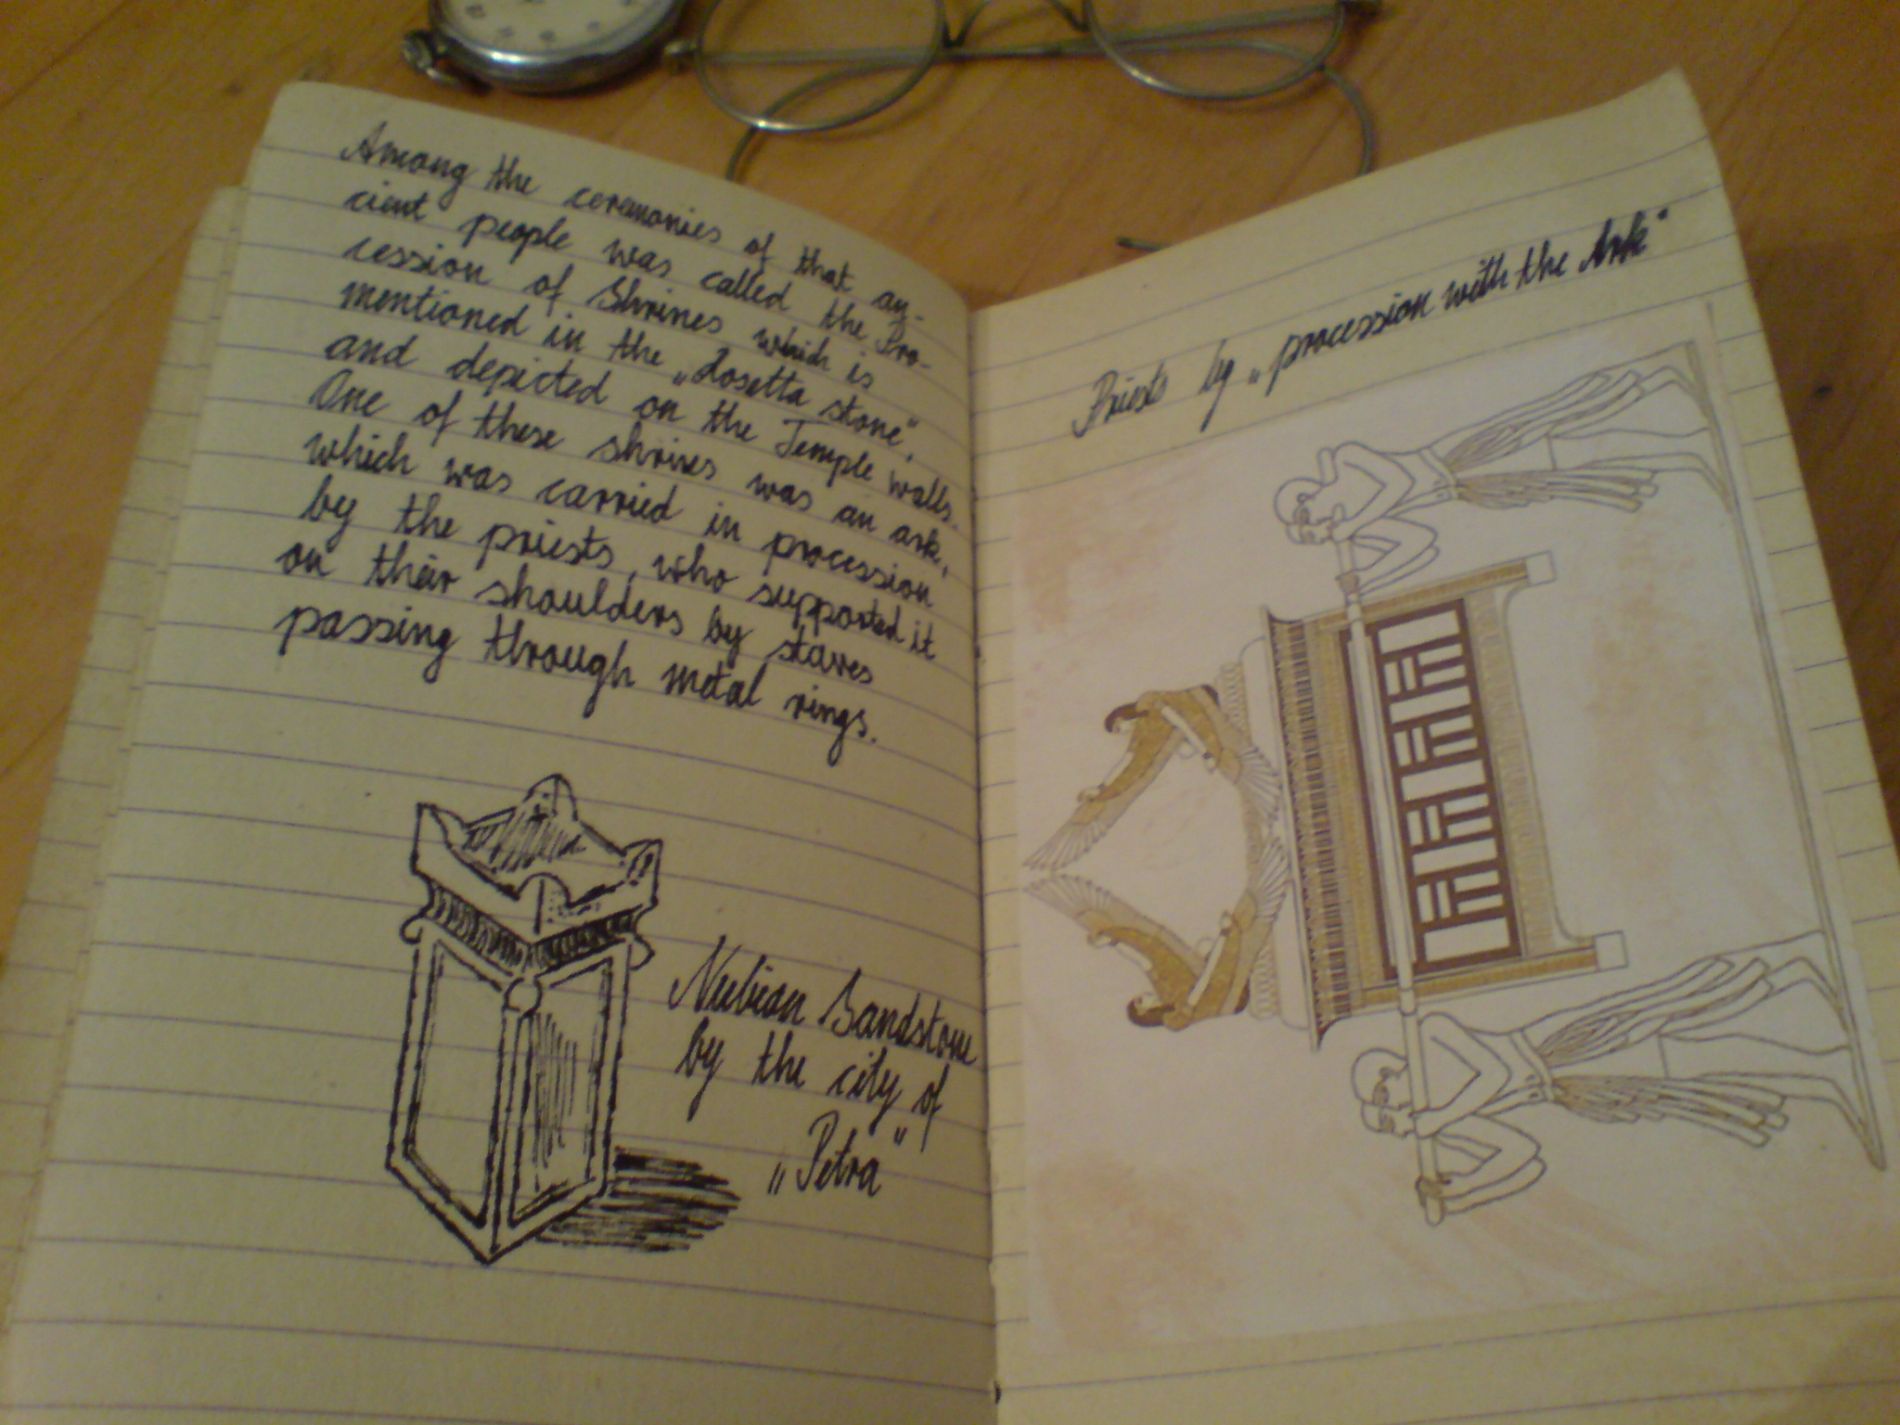 Among the ceremonies of that an-
cient people was called the Pro-
cession of Shrines which is
mentioned in the „Rosetta stone“,
and depicted on the Temple walls.
One of these shrines was an ark,
which was carried in procession
by the priests, who supported it
on their shoulders by staves
passing through metal rings.
Nubian Sandstone
by the city of
„Petra“
Priests by „procession with the Ark“